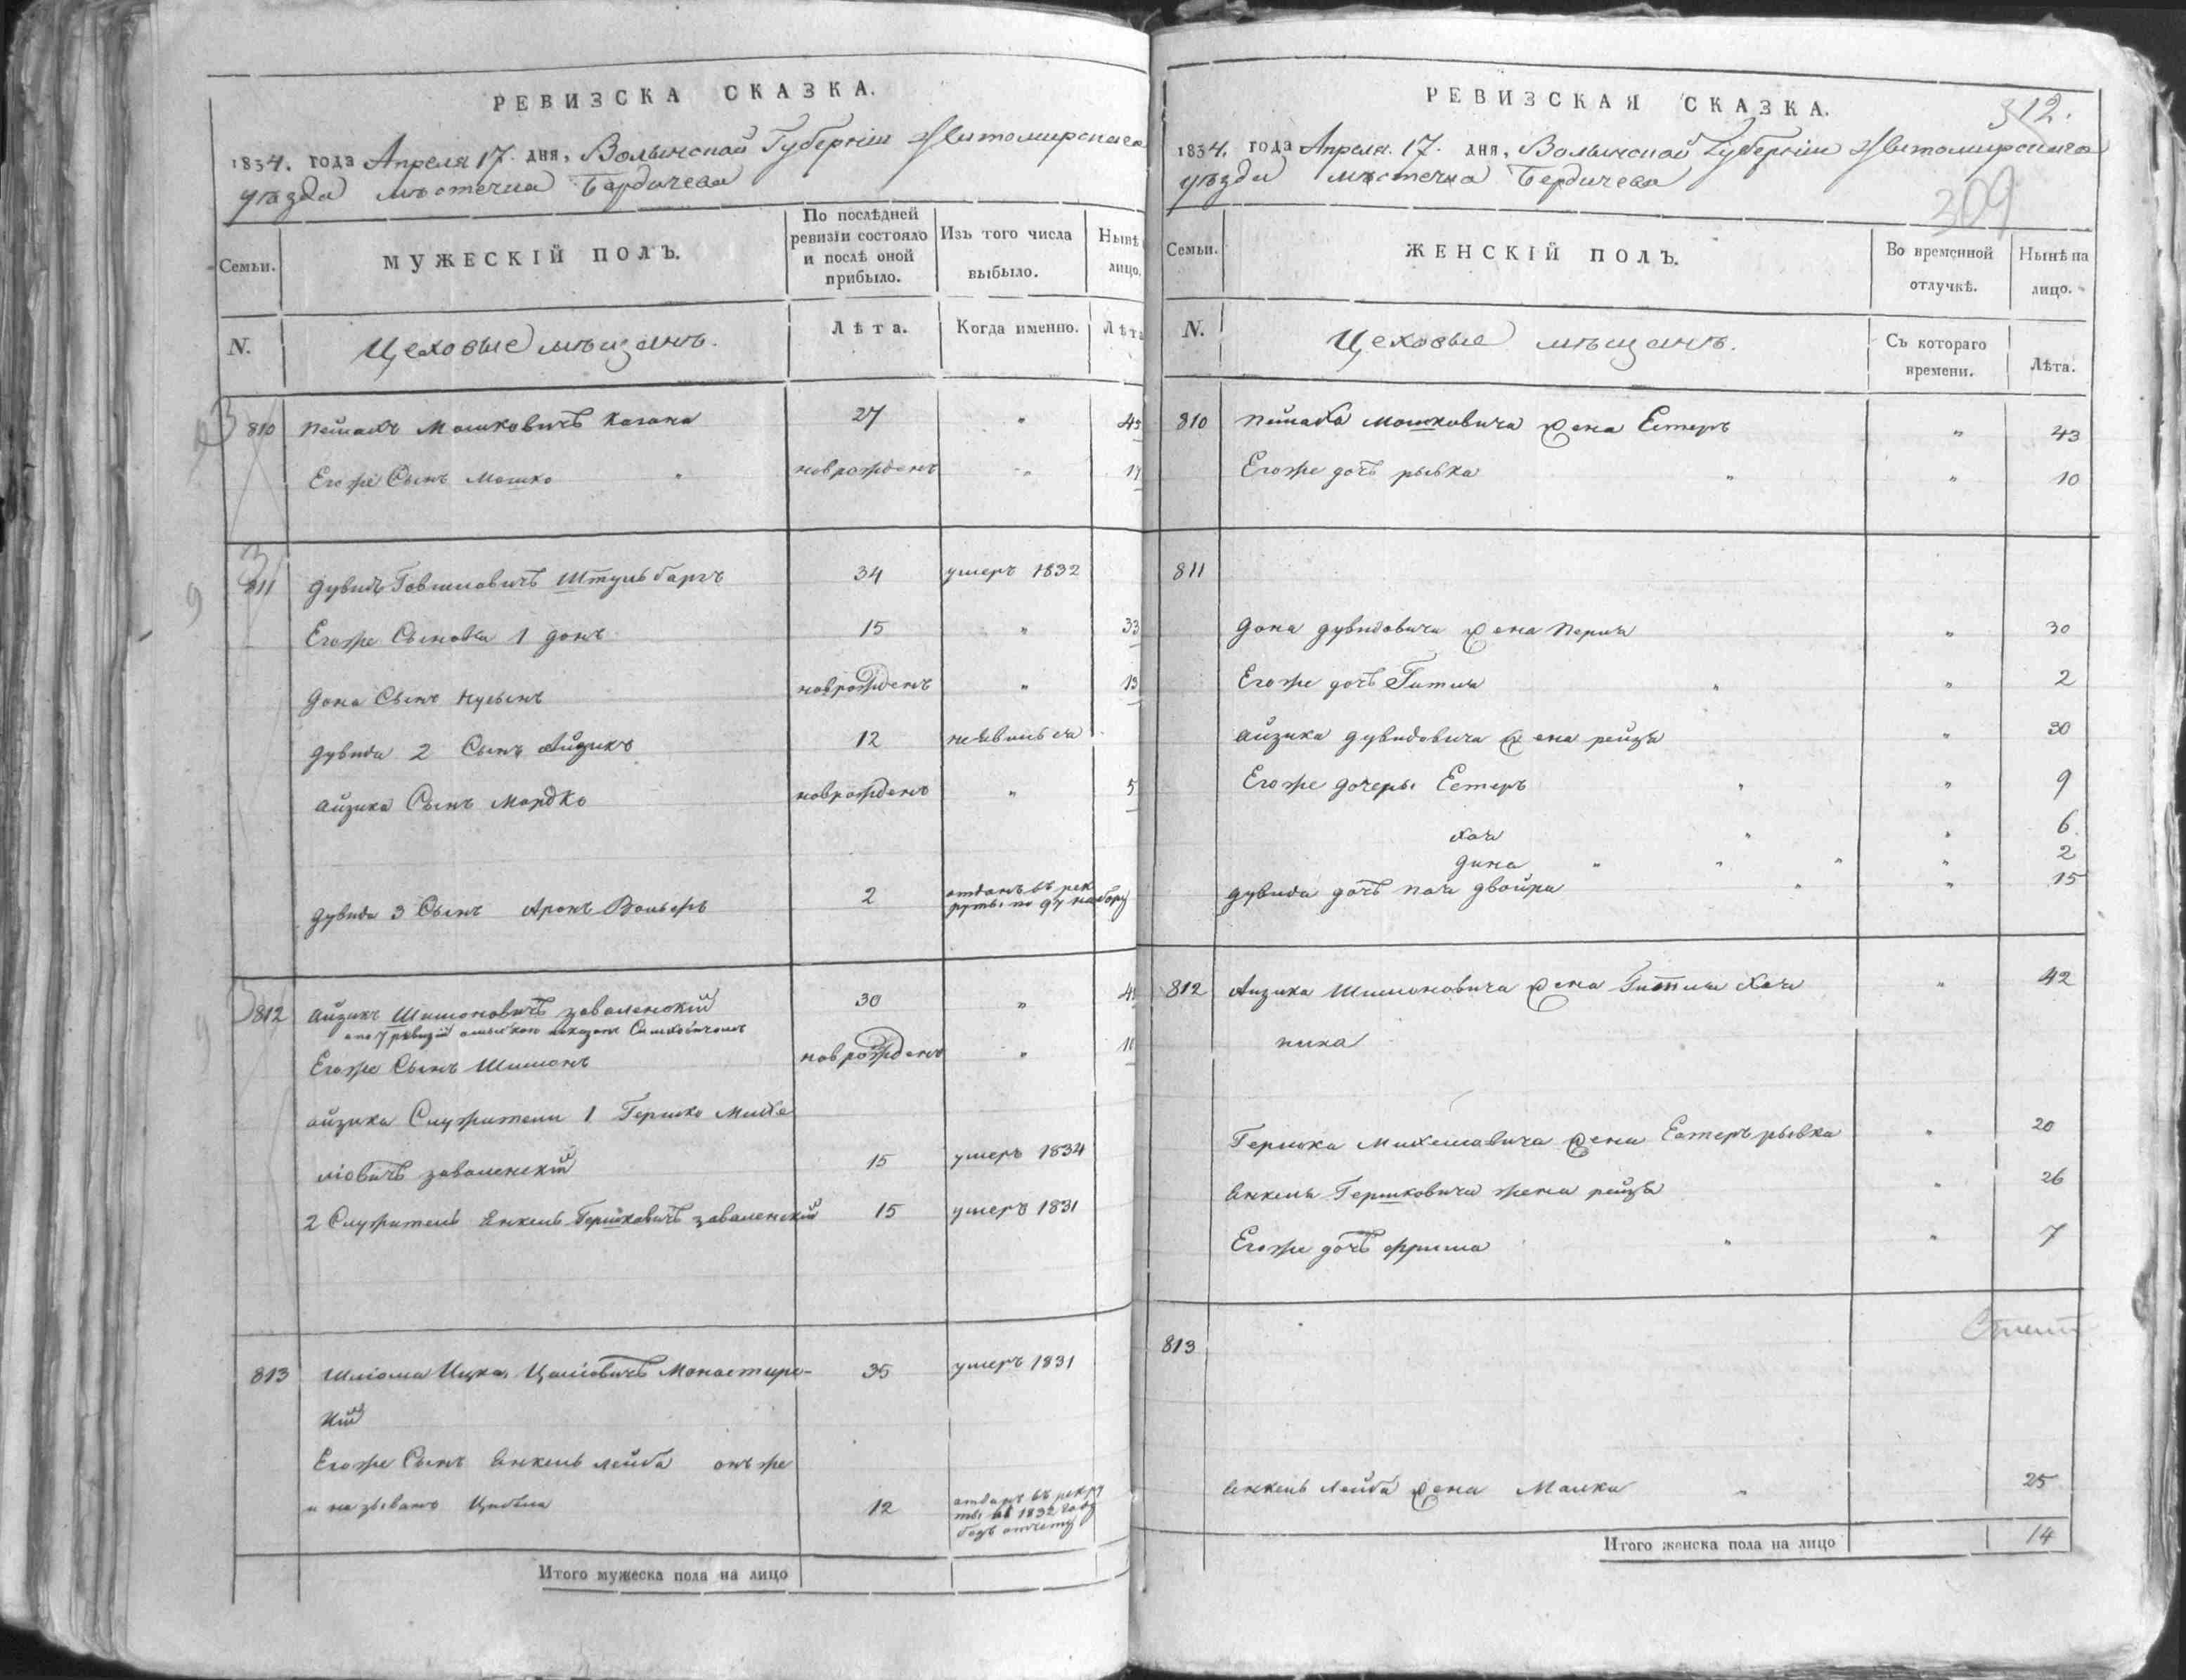 РЕВИЗСКА СКАЗКА.
1834. года Апреля 17. дня, Волынской Губерніи Житомирскаго
уѣзда мѣстечка Бердичева
Семьи.
МУЖЕСКІЙ ПОЛЪ.
По послѣдней ревизіи состояло и послѣ оной прибыло.
Изъ того числа выбыло.
Нынѣ
лицо.
N.
Цеховые мѣщанъ.
Лѣта.
Когда именно.
Лѣта
810 Пейсахъ Мошковичъ Кагана 27 "
Егоже Сынъ Мошко " новрожденъ "
811 Дувидъ Говшиовичъ Штульбаргъ 34 умеръ 1832
Егоже Сыновья 1 Донъ 15 " 33
Дона Сынъ Нусынъ новрожденъ " 13
Дувида 2 Сынъ Айзикъ 12 неявилься
Айзика Сынъ Мордко новрожденъ " 5
Дувида 3 Сынъ Аронъ Вольфъ 2 отданъ въ рек
руты по набору
812 Айзикъ Шимоновичъ Заваленскій 30 "
а по 7 ревизіи показанъ
Егоже Сынъ Шимонъ новрожденъ "
Айзика Служители 1 Гершко Михе
ліовичъ Заваленскій 15 умеръ 1834
2 Служитель Янкель Гершковичъ Заваленскій 15 умеръ 1831
813 Шліома Ицка Монастирс-
кій 35 умеръ 1831
Егоже Сынъ Янкель Лейба онъ же
и называть 12 отданъ въ рекру
ты въ 1832 году
безъ отчету
Итого мужеска пола на лицо
РЕВИЗСКАЯ СКАЗКА.
312.
1834. года Апреля. 17. дня, Волынской Губерніи Житомирскаго
уѣзда мѣстечка Бердичева
309
Семьи.
ЖЕНСКІЙ ПОЛЪ.
Во временной отлучкѣ.
Нынѣ на лицо.
N.
Цеховые мѣщанъ.
Съ котораго времени.
Лѣта.
810 Пейсаха Мошковича жена Естеръ " 43
Егоже дочь Рывка " " 10
811
Дона Дувидовича жена Перля " 30
Егоже дочь Гитля " " 2
Айзика Дувидовича жена Рейзя " 30
Егоже дочеры Естеръ " " 9
Хая " " 6
Дина " " " " 2
Дувида дочь Двойра " " 15
812 Айзика Шимоновича жена Гитля Хая " 42
Гершка Михелиовича жена Естеръ Рывка " 20
Янкеля Гершковича жена Рейзя " 26
Егоже дочь Фрима " " 7
813
Янкель Лейба жена Малка " 25
Итого женска пола на лицо 14